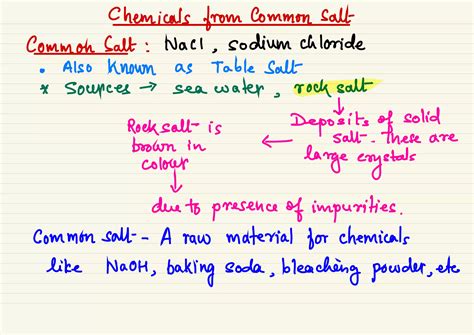 Chemicals from Common Salt
Common Salt : NaCl , sodium chloride
• Also Known as Table Salt
* Sources → sea water , rock salt
Deposits of solid
salt - these are
large crystals
Rock salt - is
brown in
colour
due to presence of impurities.
Common salt - A raw material for chemicals
like NaOH, baking soda, bleaching powder, etc